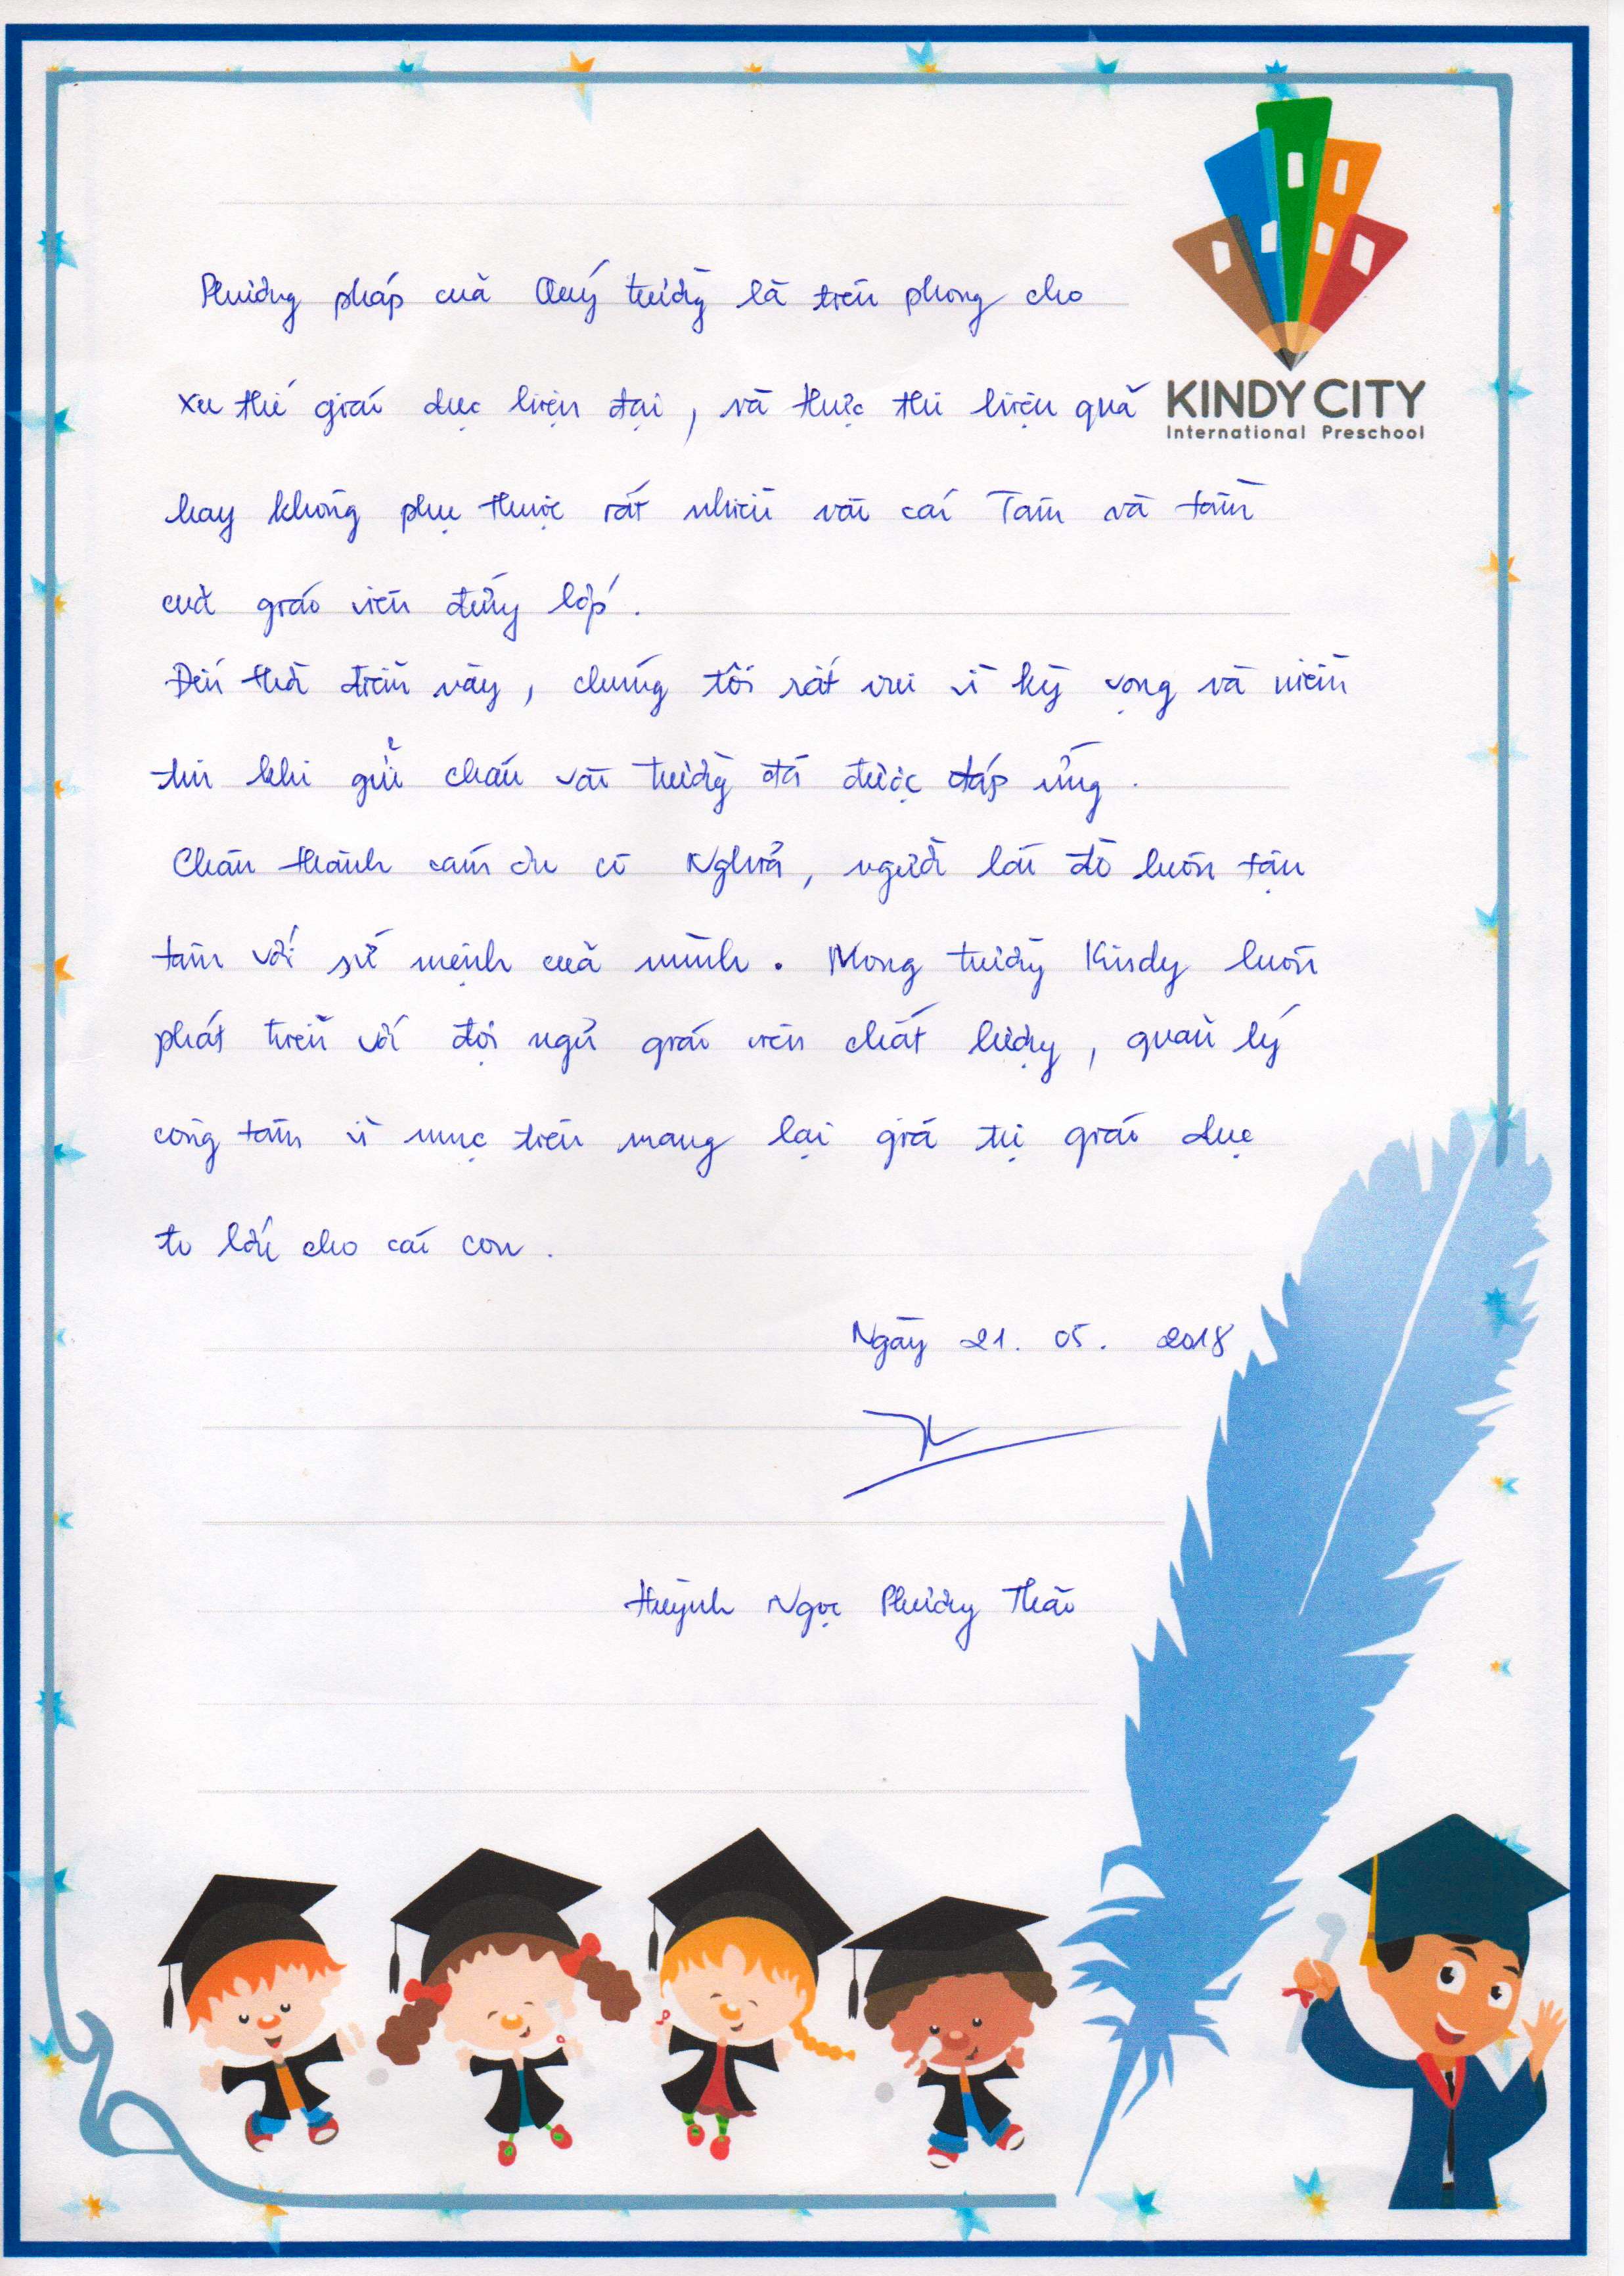 KINDY CITY
International Preschool
Phương pháp của Quý trường là tiên phong cho
xu thế giáo dục hiện đại, và thực thi hiệu quả
hay không phụ thuộc rất nhiều vào cái Tâm và tầm
của giáo viên đứng lớp.
Đến thời điểm này, chúng tôi rất vui vì kỳ vọng và niềm
tin khi gửi cháu vào trường đã được đáp ứng.
Chân thành cám ơn cô Nghĩa, người lái đò luôn tận
tâm với sứ mệnh của mình. Mong trường Kindy luôn
phát triển với đội ngũ giáo viên chất lượng, quản lý
công tâm vì mục tiêu mang lại giá trị giáo dục
to lớn cho các con.
Ngày 21. 05. 2018
Huỳnh Ngọc Phương Thảo